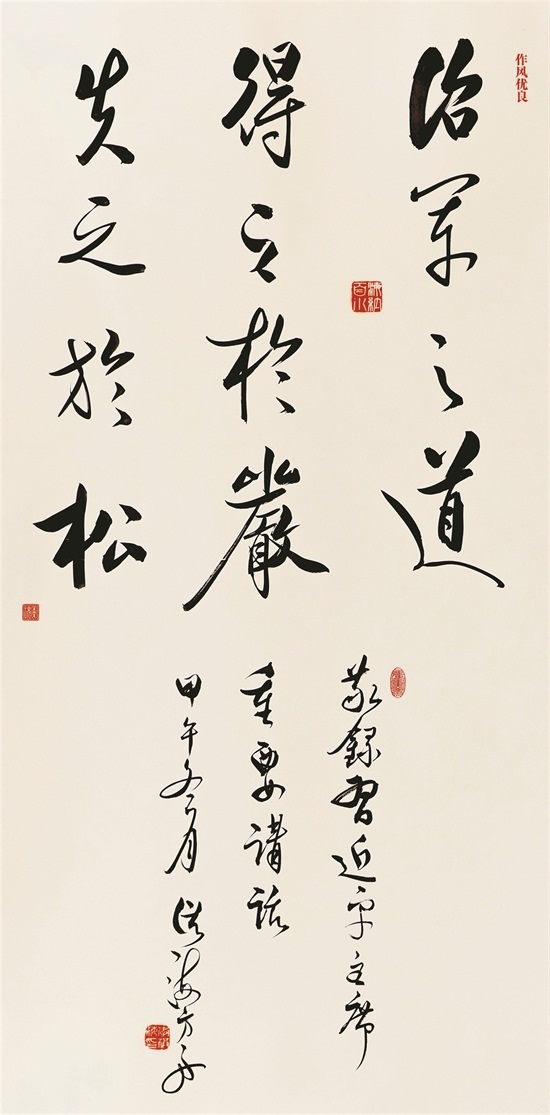 作风优良
治军之道
得之于严
失之於松
敬录习近平主席
重要講話
甲午冬月